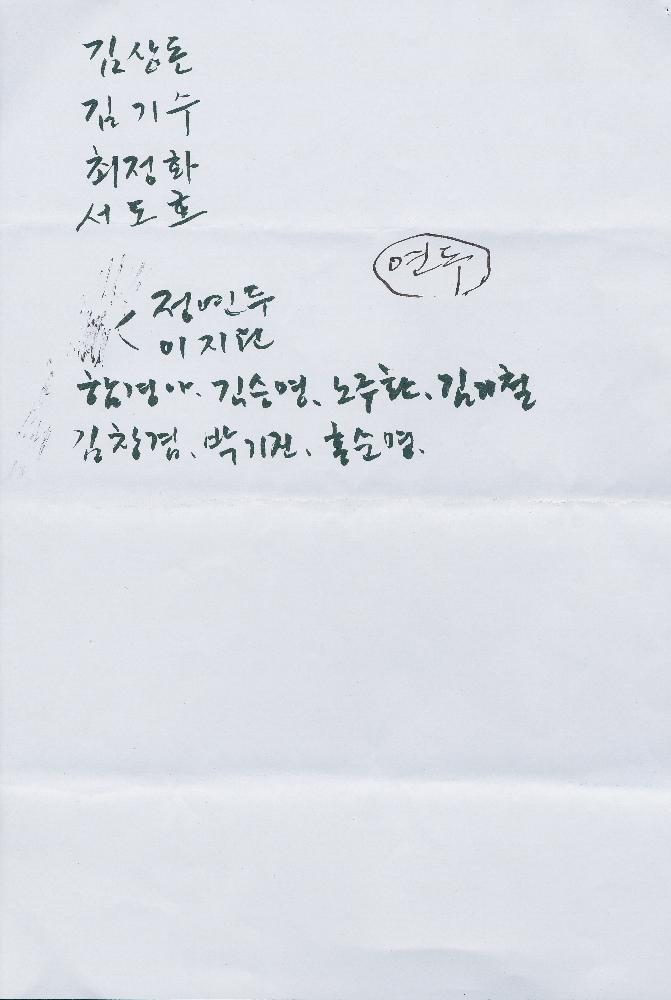 김상돈
김기수
최정화
서도호
연두
정연두
이지연
함경아. 김승영, 노주환, 김기철
김창겸, 박기진, 홍순명.